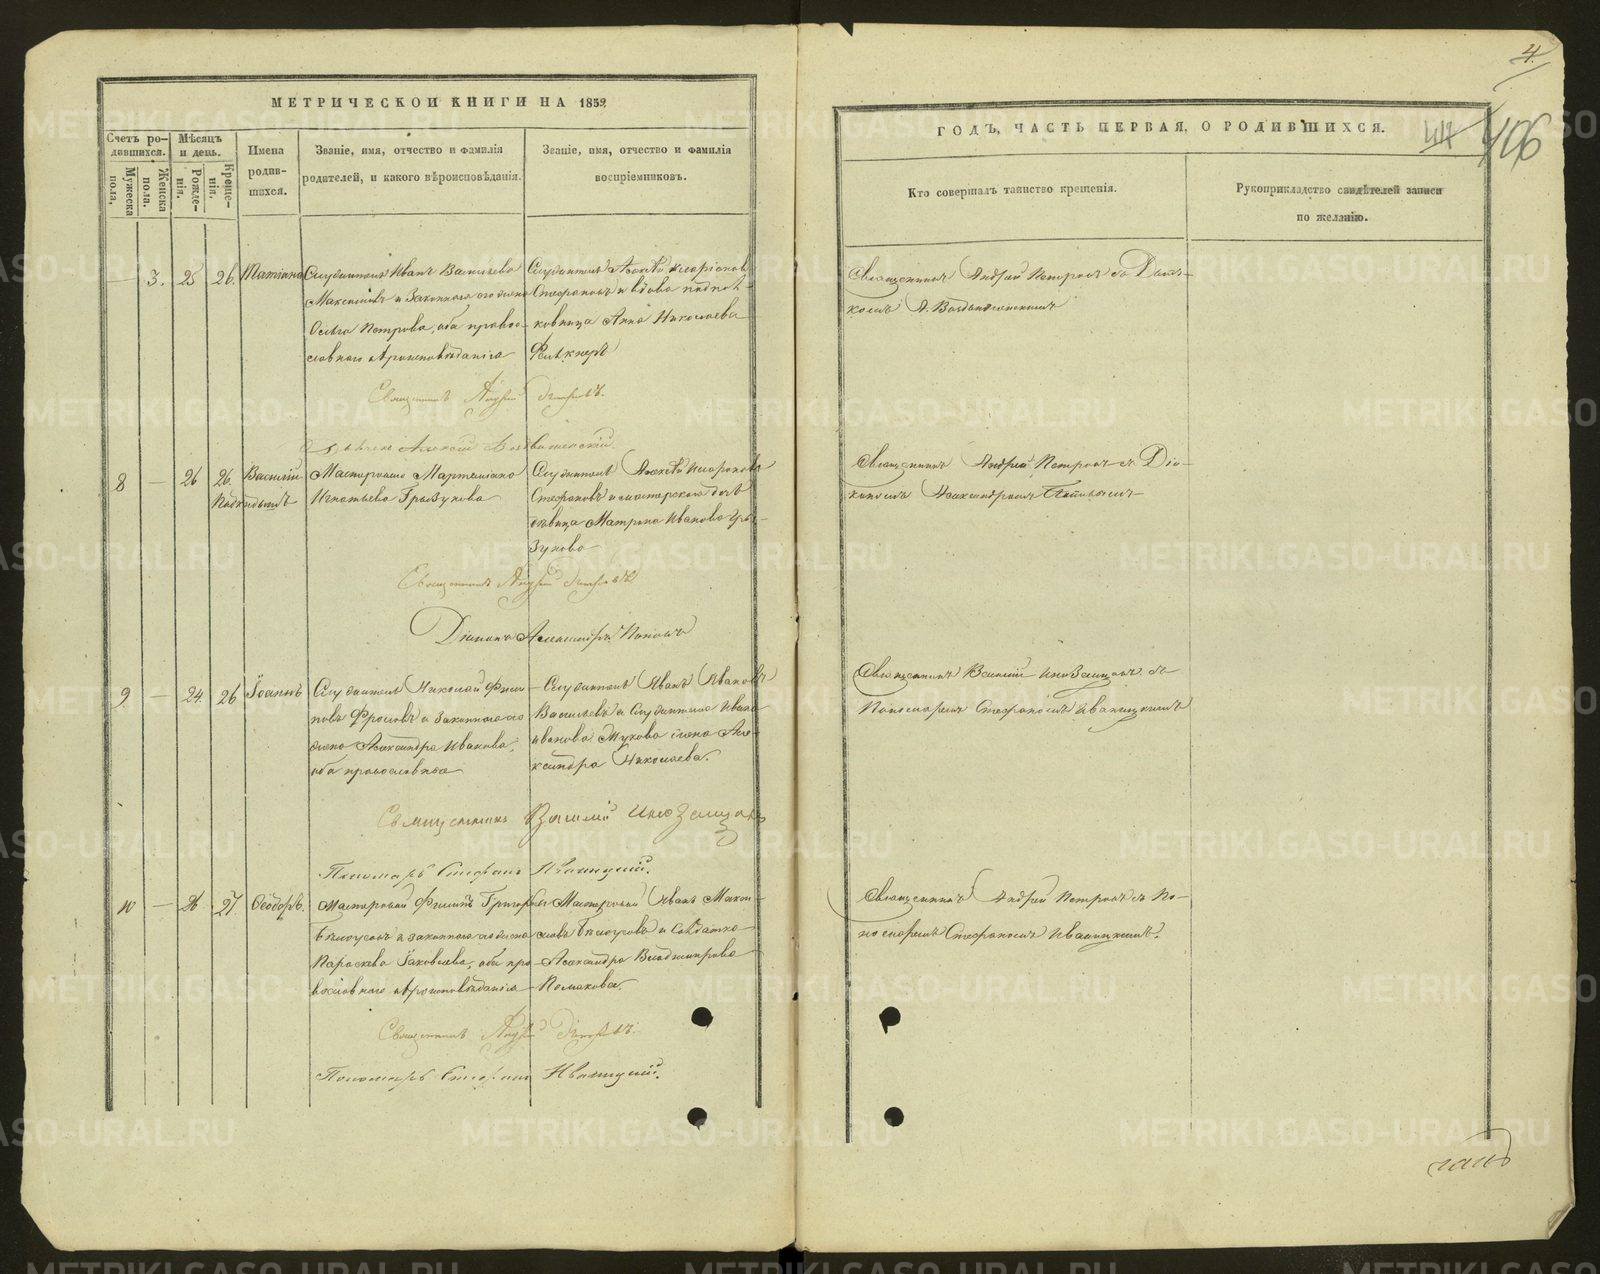 4.
МЕТРИЧЕСКОЙ КНИГИ НА 1852
ГОДЪ, ЧАСТЬ ПЕРВАЯ, О РОДИВШИХСЯ.
406
Счетъ ро-
дившихся.
Мужеска
пола.
Женска
пола.
Мѣсяцъ
и день.
Рожде-
нія.
Креще-
нія.
Имена
родив-
шихся.
Званіе, имя, отчество и фамилія
родителей, и какого вѣроисповѣданія.
Званіе, имя, отчество и фамилія
воспріемниковъ.
Кто совершалъ таинство крещенія.
Рукоприкладство свидѣтелей записи
по желанію.
3. 25 26. Татіана
Служитель Иванъ Васильевъ
Максимовъ и законная его жена
Ольга Петрова, оба право-
славнаго вѣроисповѣданія
Служитель Алексѣй
Стефановъ и вдова
Анна Николаева
Священникъ Андрей Петровъ съ Дья-
кономъ А. Воздвиженскимъ
Священникъ Андрей Петровъ.
Алексѣй Воздвиженскій
8 — 26 26. Василій
Подкидышъ
Мастероваго
Игнатьева Грызунова
Служитель Алексѣй
Стефановъ и мастерская дочь
дѣвица Матрона Иванова Гры-
зунова
Священникъ Андрей Петровъ съ Діа-
кономъ Александромъ Поповымъ
Священникъ Андрей Петровъ
Діаконъ Александръ Поповъ
9 — 24. 26 Іоаннъ
Служитель Николай Филип-
повъ Фроловъ и законная его
жена Александра Иванова,
оба православные
Служитель Иванъ Ивановъ
Васильевъ и Служителя Ивана
Иванова жена Але-
ксандра Николаева.
Священникъ Василій Инозе́мцовъ съ
Пономаремъ Стефаномъ Иваницкимъ
Священникъ Василій Иноземцовъ
Пономарь Стефанъ Иваницкій.
10 — 26 27 Ѳеодоръ.
Мастеровой Филиппъ Григорьевъ
Бѣлоусовъ и законная его жена
Параскева Іаковлева, оба пра-
вославнаго вѣроисповѣданія
Мастеровой Иванъ
Бѣлоусовъ и Солдатка
Александра Владимирова
Полякова.
Священникъ Андрей Петровъ съ По-
номаремъ Стефаномъ Иваницкимъ.
Священникъ Андрей Петровъ.
Пономарь Стефанъ Иваницкій.
METRIKI.GASO-URAL.RU